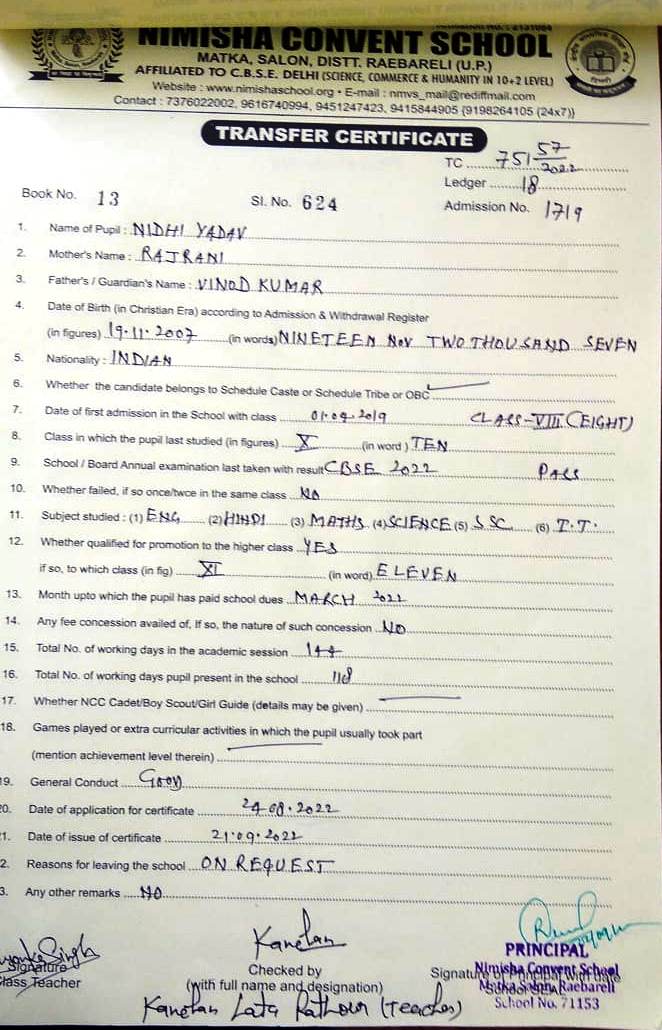 NIMISHA CONVENT SCHOOL
MATKA, SALON, DISTT. RAEBARELI (U.P.)
AFFILIATED TO C.B.S.E. DELHI (SCIENCE, COMMERCE & HUMANITY IN 10+2 LEVEL)
Website : www.nimishaschool.org • E-mail : nmvs_mail@rediffmail.com
Contact : 7376022002, 9616740994, 9451247423, 9415844905 {9198264105 (24x7)}
TRANSFER CERTIFICATE
TC 751 57/2022
Ledger 18
Book No. 13 Sl. No. 624 Admission No. 1719
1. Name of Pupil : NIDHI YADAV
2. Mother's Name : RAJRANI
3. Father's / Guardian's Name : VINOD KUMAR
4. Date of Birth (in Christian Era) according to Admission & Withdrawal Register
(in figures) 19.11.2007 (in words) NINETEEN NOV TWO THOUSAND SEVEN
5. Nationality : INDIAN
6. Whether the candidate belongs to Schedule Caste or Schedule Tribe or OBC
7. Date of first admission in the School with class 01.04.2019 CLASS-VIII (EIGHT)
8. Class in which the pupil last studied (in figures) X (in word) TEN
9. School / Board Annual examination last taken with result CBSE 2022 PASS
10. Whether failed, if so once/twce in the same class NO
11. Subject studied : (1) ENG (2) HINDI (3) MATHS (4) SCIENCE (5) S SC (6) I.T.
12. Whether qualified for promotion to the higher class YES
if so, to which class (in fig) XI (in word) ELEVEN
13. Month upto which the pupil has paid school dues MARCH 2022
14. Any fee concession availed of, If so, the nature of such concession NO
15. Total No. of working days in the academic session 144
16. Total No. of working days pupil present in the school 118
17. Whether NCC Cadet/Boy Scout/Girl Guide (details may be given)
18. Games played or extra curricular activities in which the pupil usually took part
(mention achievement level therein)
19. General Conduct GOOD
20. Date of application for certificate 24.08.2022
21. Date of issue of certificate 21.09.2022
2. Reasons for leaving the school ON REQUEST
3. Any other remarks NO
Singh
Signature
Class Teacher
Kanchan
Checked by
(with full name and designation)
Kanchan Lata Rathour (Teacher)
PRINCIPAL
Signature of Principal with date
School SEAL
Nimisha Convent School
Matka, Salon, Raebareli
School No. 71153